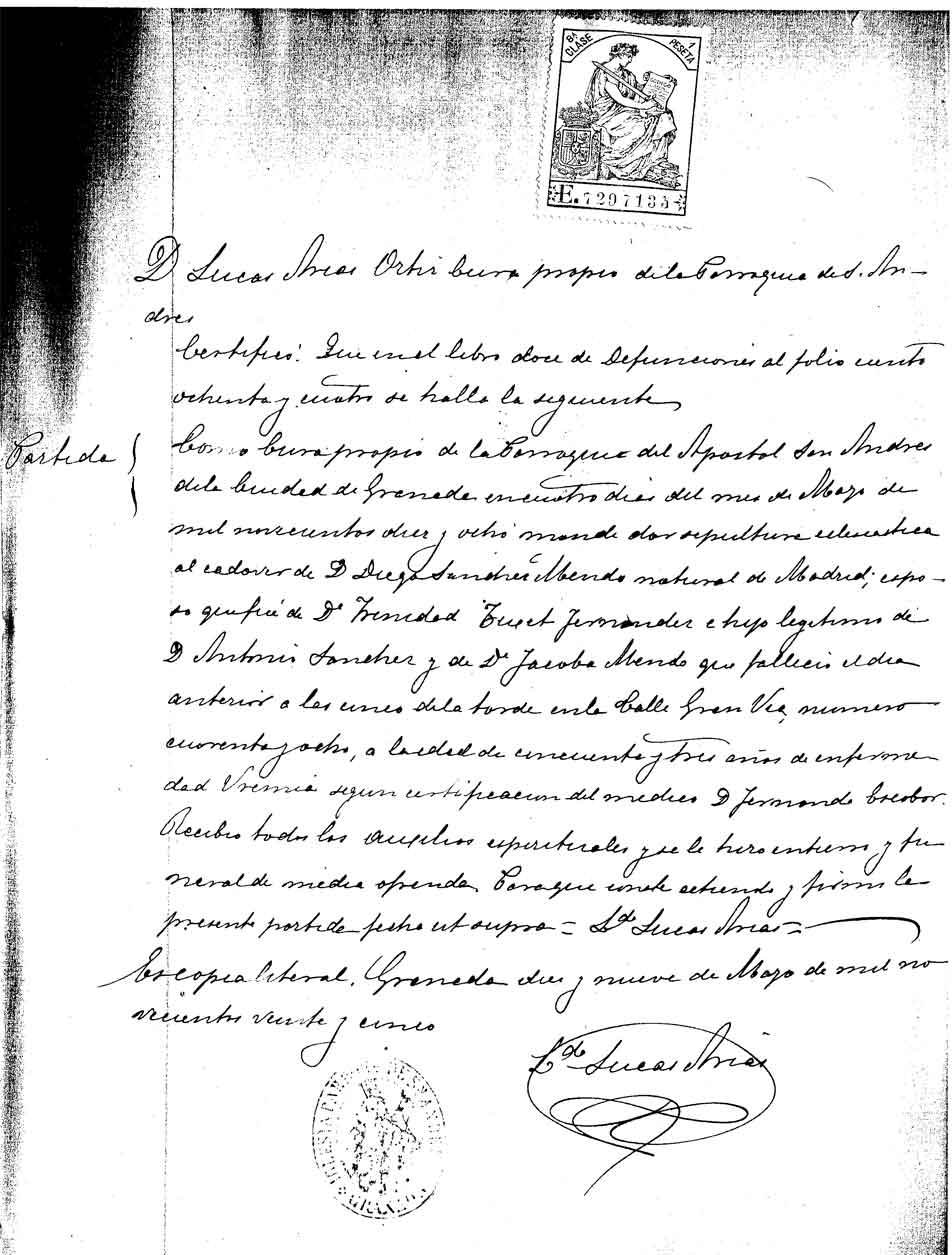 8ª CLASE
1 PESETA
E.7297135
D Lucas Arias Ortiz Cura propio de la Parroquia de S. An-
dres
Certifico: Que en el libro doce de Defunciones al folio ciento
ochenta y cuatro se halla la siguiente
Partida
Como Cura propio de la Parroquia del Apostol San Andres
de la Ciudad de Granada en cuatro dias del mes de Mayo de
mil novecientos diez y ocho mande dar sepultura eclesiastica
al cadaver de D Diego Sanchez Mendo natural de Madrid; espo-
so que fué de Dª Trinidad Fernandez e hijo legitimo de
D Antonio Sanchez y de Dª Jacoba Mendo que fallecio el dia
anterior a las cinco de la tarde en la Calle Gran Via, numero
cuarenta y ocho, a la edad de cincuenta y tres años de enferme
dad Uremia segun certificacion del medico D Fernando Escobar.
Recibio todos los auxilios espirituales y se le hizo entierro y fu
neral de media ofrenda. Para que conste extiendo y firmo la
presente partida fecha ut supra = Ldo Lucas Arias =
Es copia literal. Granada diez y nueve de Mayo de mil no
vecientos veinte y cinco
Ldo Lucas Arias
IGLESIA PARROQUIAL DE SAN ANDRES
GRANADA